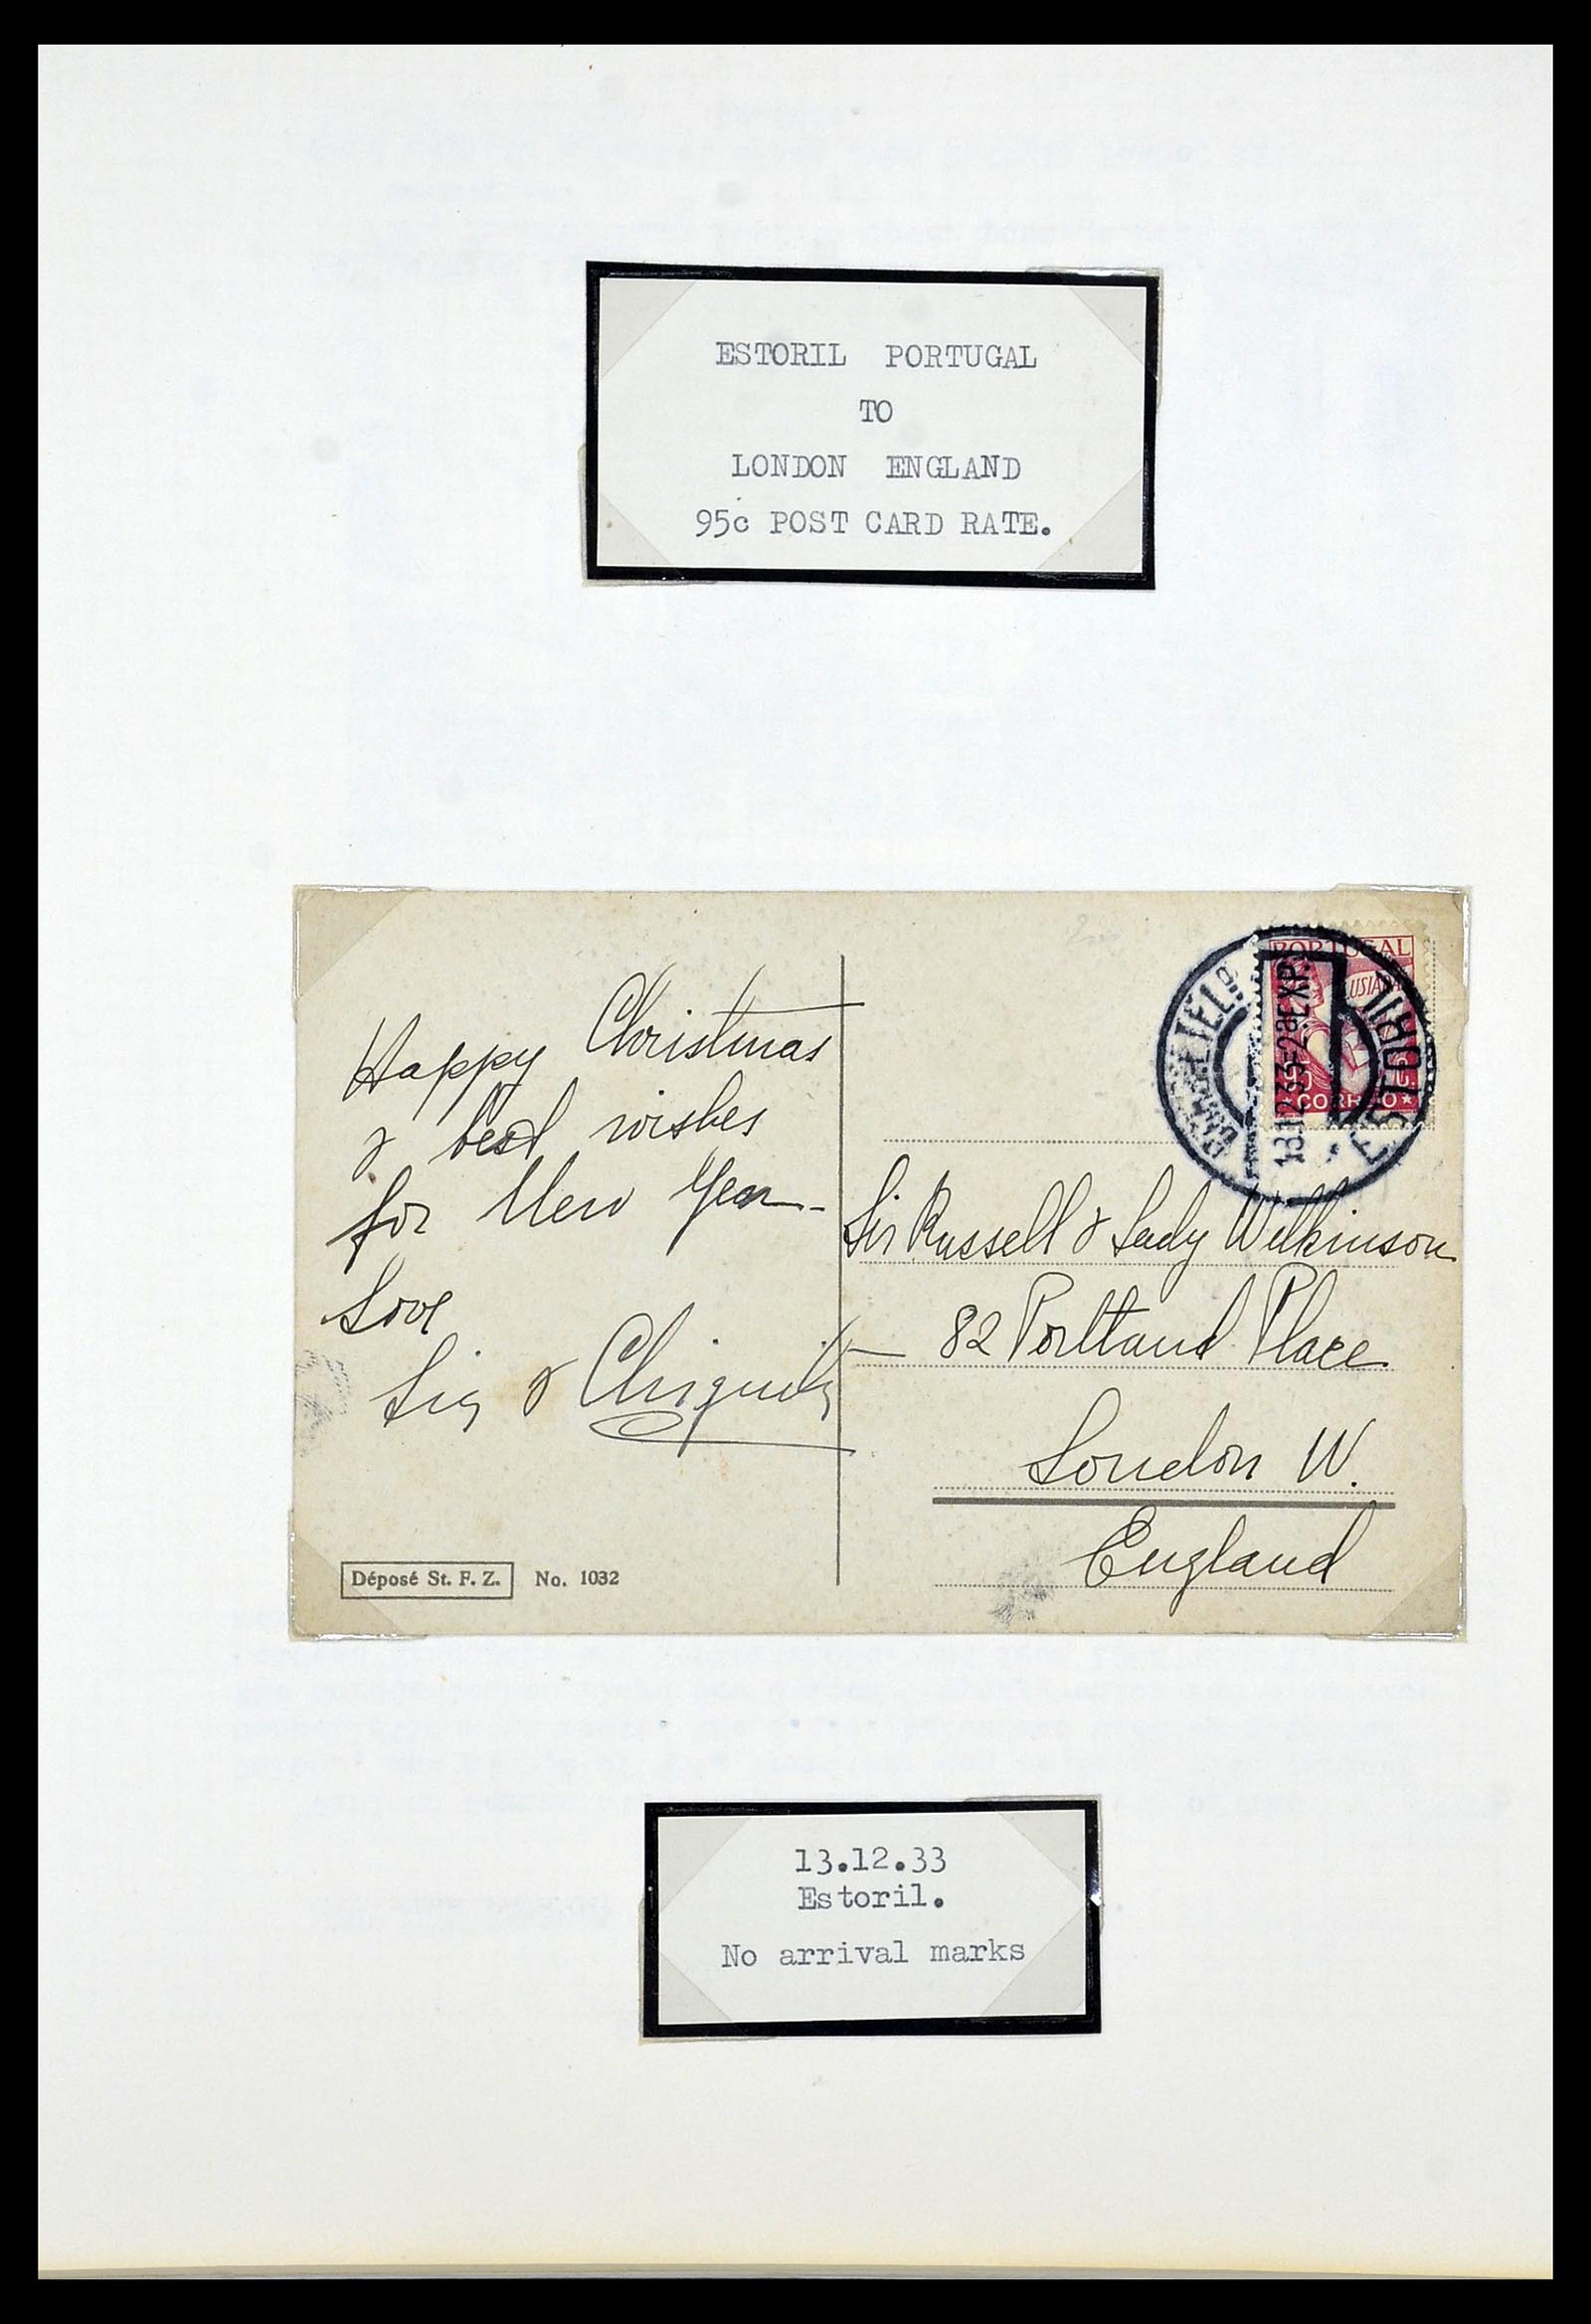 ESTORIL PORTUGAL
TO
LONDON ENGLAND
95c POST CARD RATE.
Happy Christmas
& best wishes
for New Year -
Love
&
Déposé St. F. Z. No. 1032
PORTUGAL
LUSIADAS
CORREIO
ESTORIL
13.12.33-2ªEXP.
Sir Russell & Lady Wilkinson
82 Portland Place
London W.
England
13.12.33
Estoril.
No arrival marks